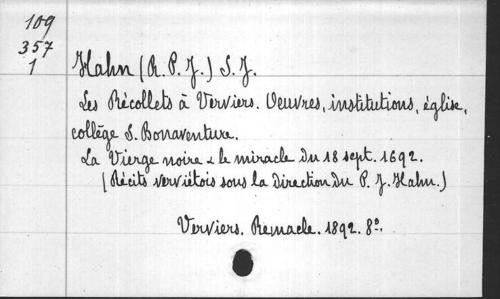 109
357
1
Hahn (R. P. J.) S. J.
Les Récollets à Verviers. Oeuvres, institutions, église,
collège S. Bonaventure.
La Vierge noire & le miracle du 18 sept. 1692.
(Récits verviétois sous la direction du P. J. Hahn.)
Verviers. Remacle. 1892. 8º.